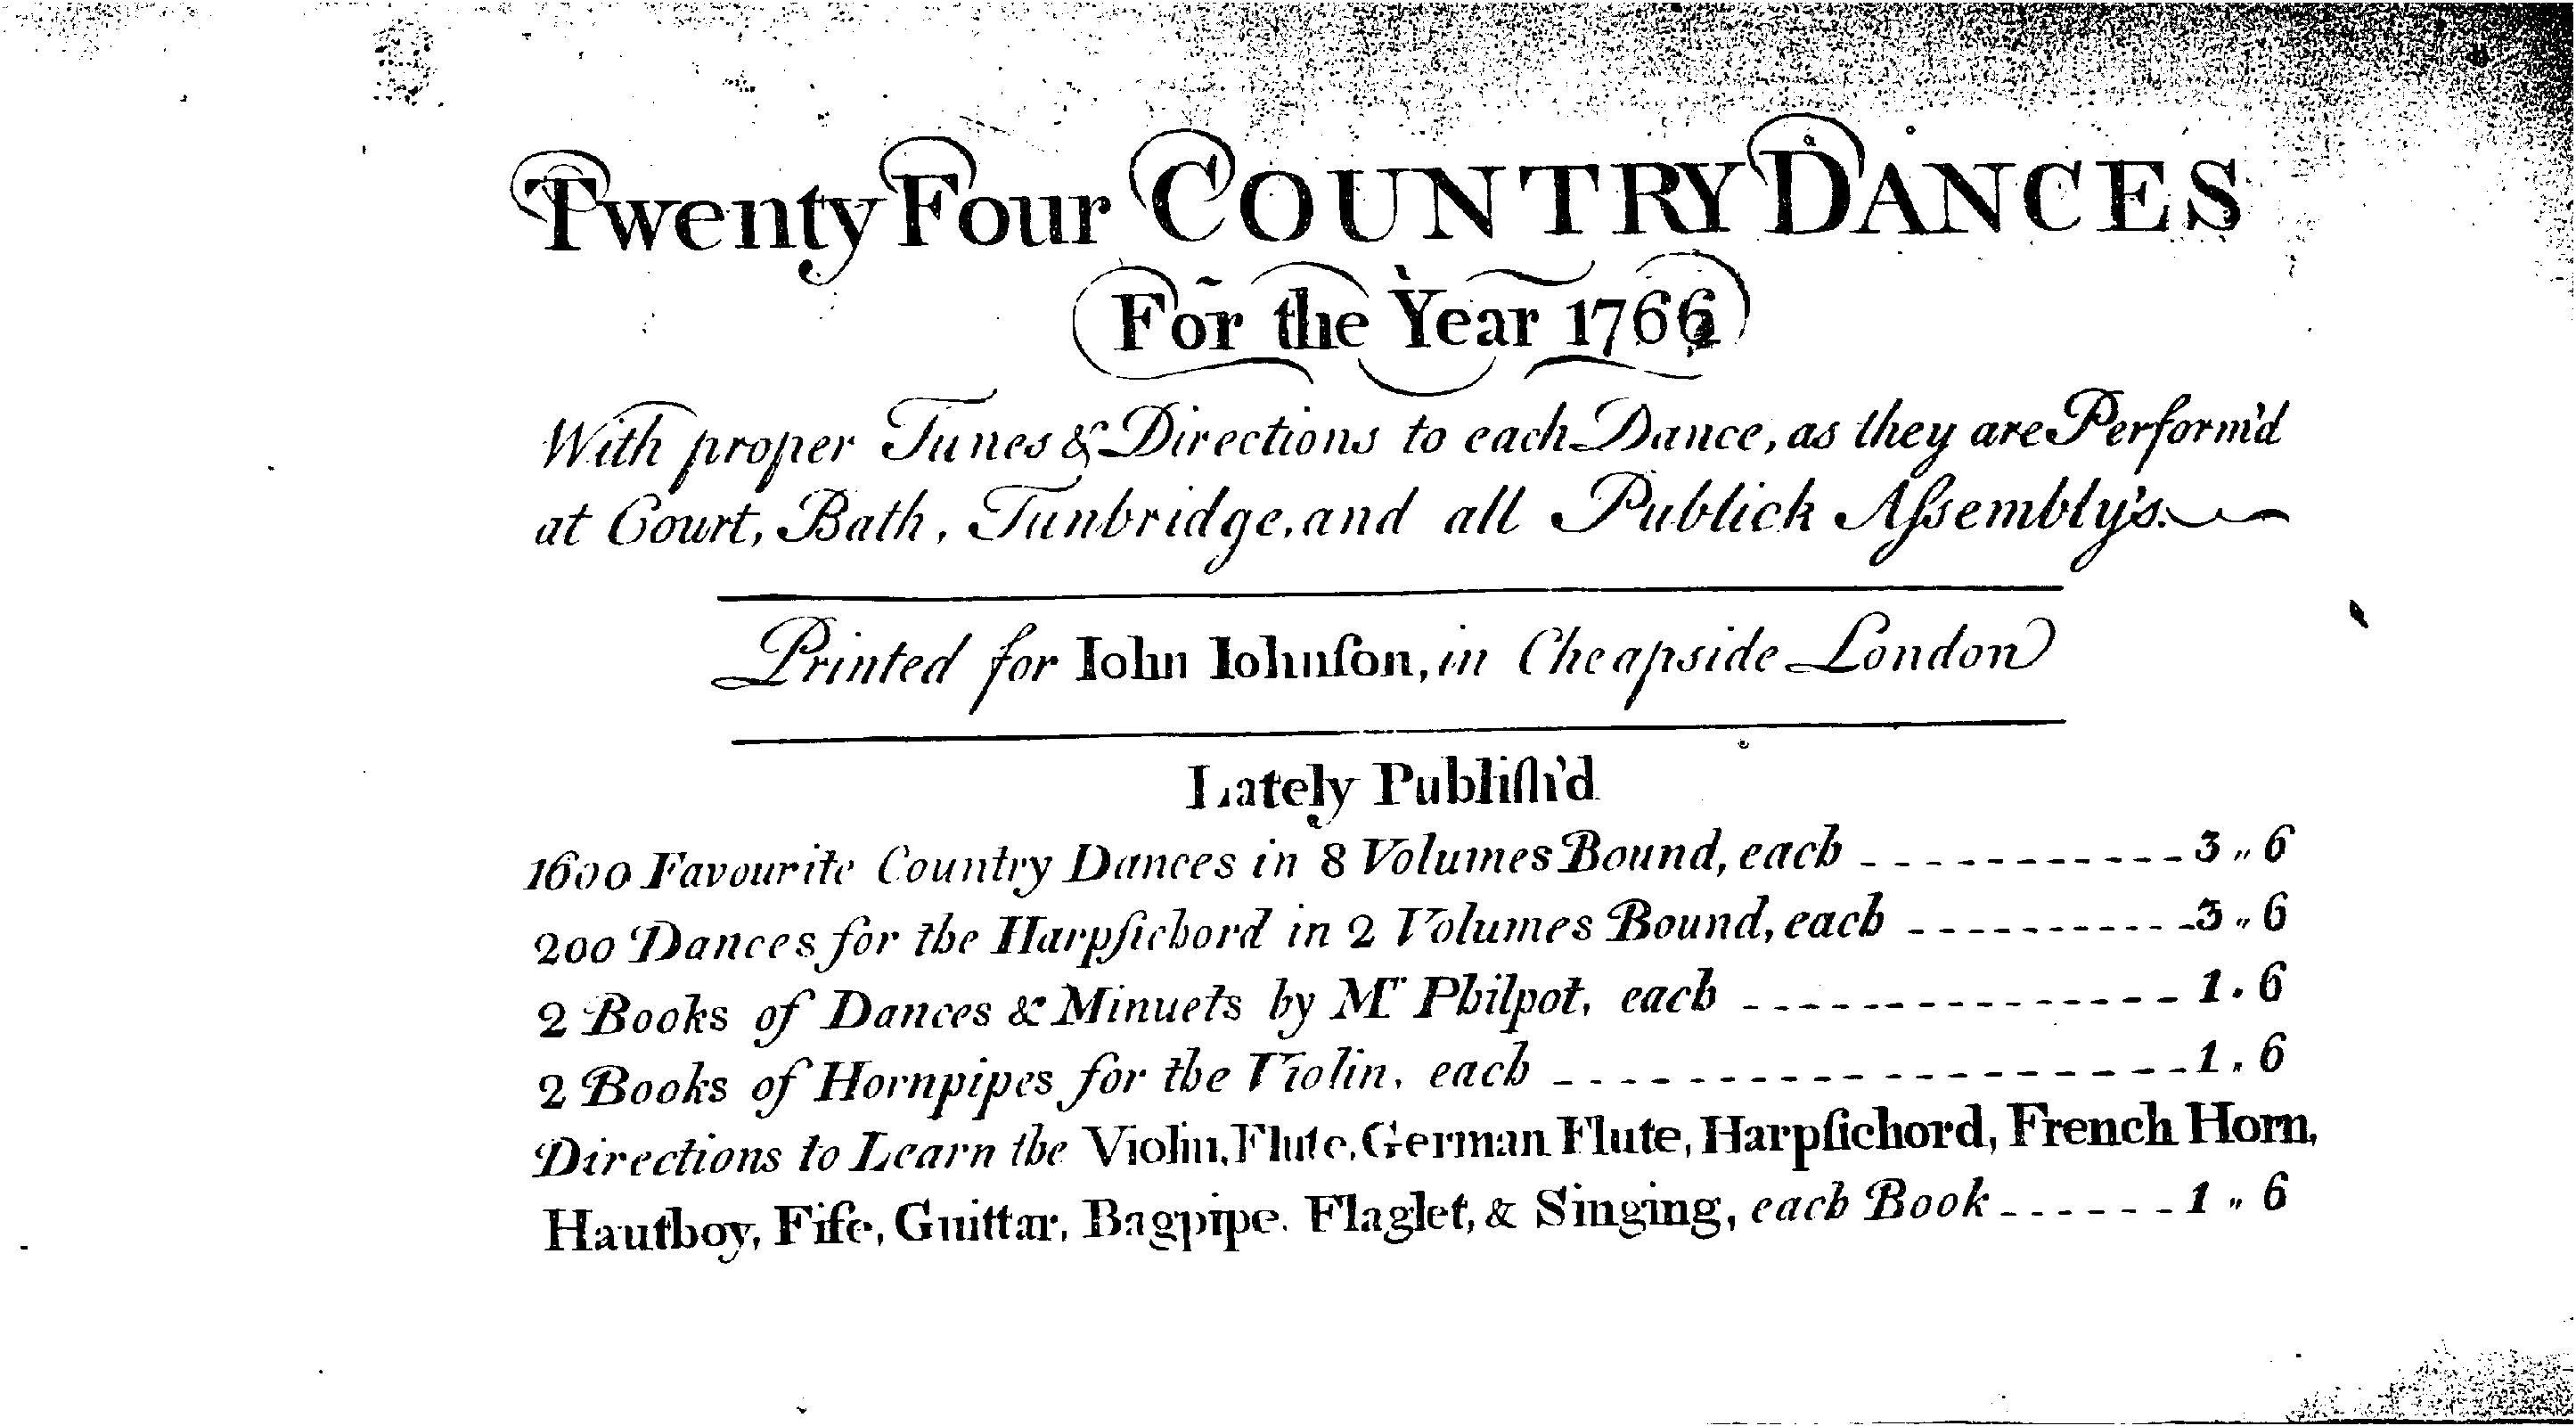 Twenty Four COUNTRY DANCES
For the Year 1766
With proper Tunes & Directions to each Dance, as they are Perform'd
at Court, Bath, Tunbridge, and all Publick Aſsembly's.
Printed for Iohn Iohnſon, in Cheapside London
Lately Publiſh'd
1600 Favourite Country Dances in 8 Volumes Bound, each - - - - - - - - - - - 3 " 6
200 Dances for the Harpſichord in 2 Volumes Bound, each - - - - - - - - - - 3 " 6
2 Books of Dances & Minuets by Mr Philpot, each - - - - - - - - - - - - - - 1 . 6
2 Books of Hornpipes for the Violin, each - - - - - - - - - - - - - - - - - - 1 . 6
Directions to Learn the Violin, Flute, German Flute, Harpſichord, French Horn,
Hautboy, Fife, Guittar, Bagpipe, Flaglet, & Singing, each Book - - - - - - 1 " 6